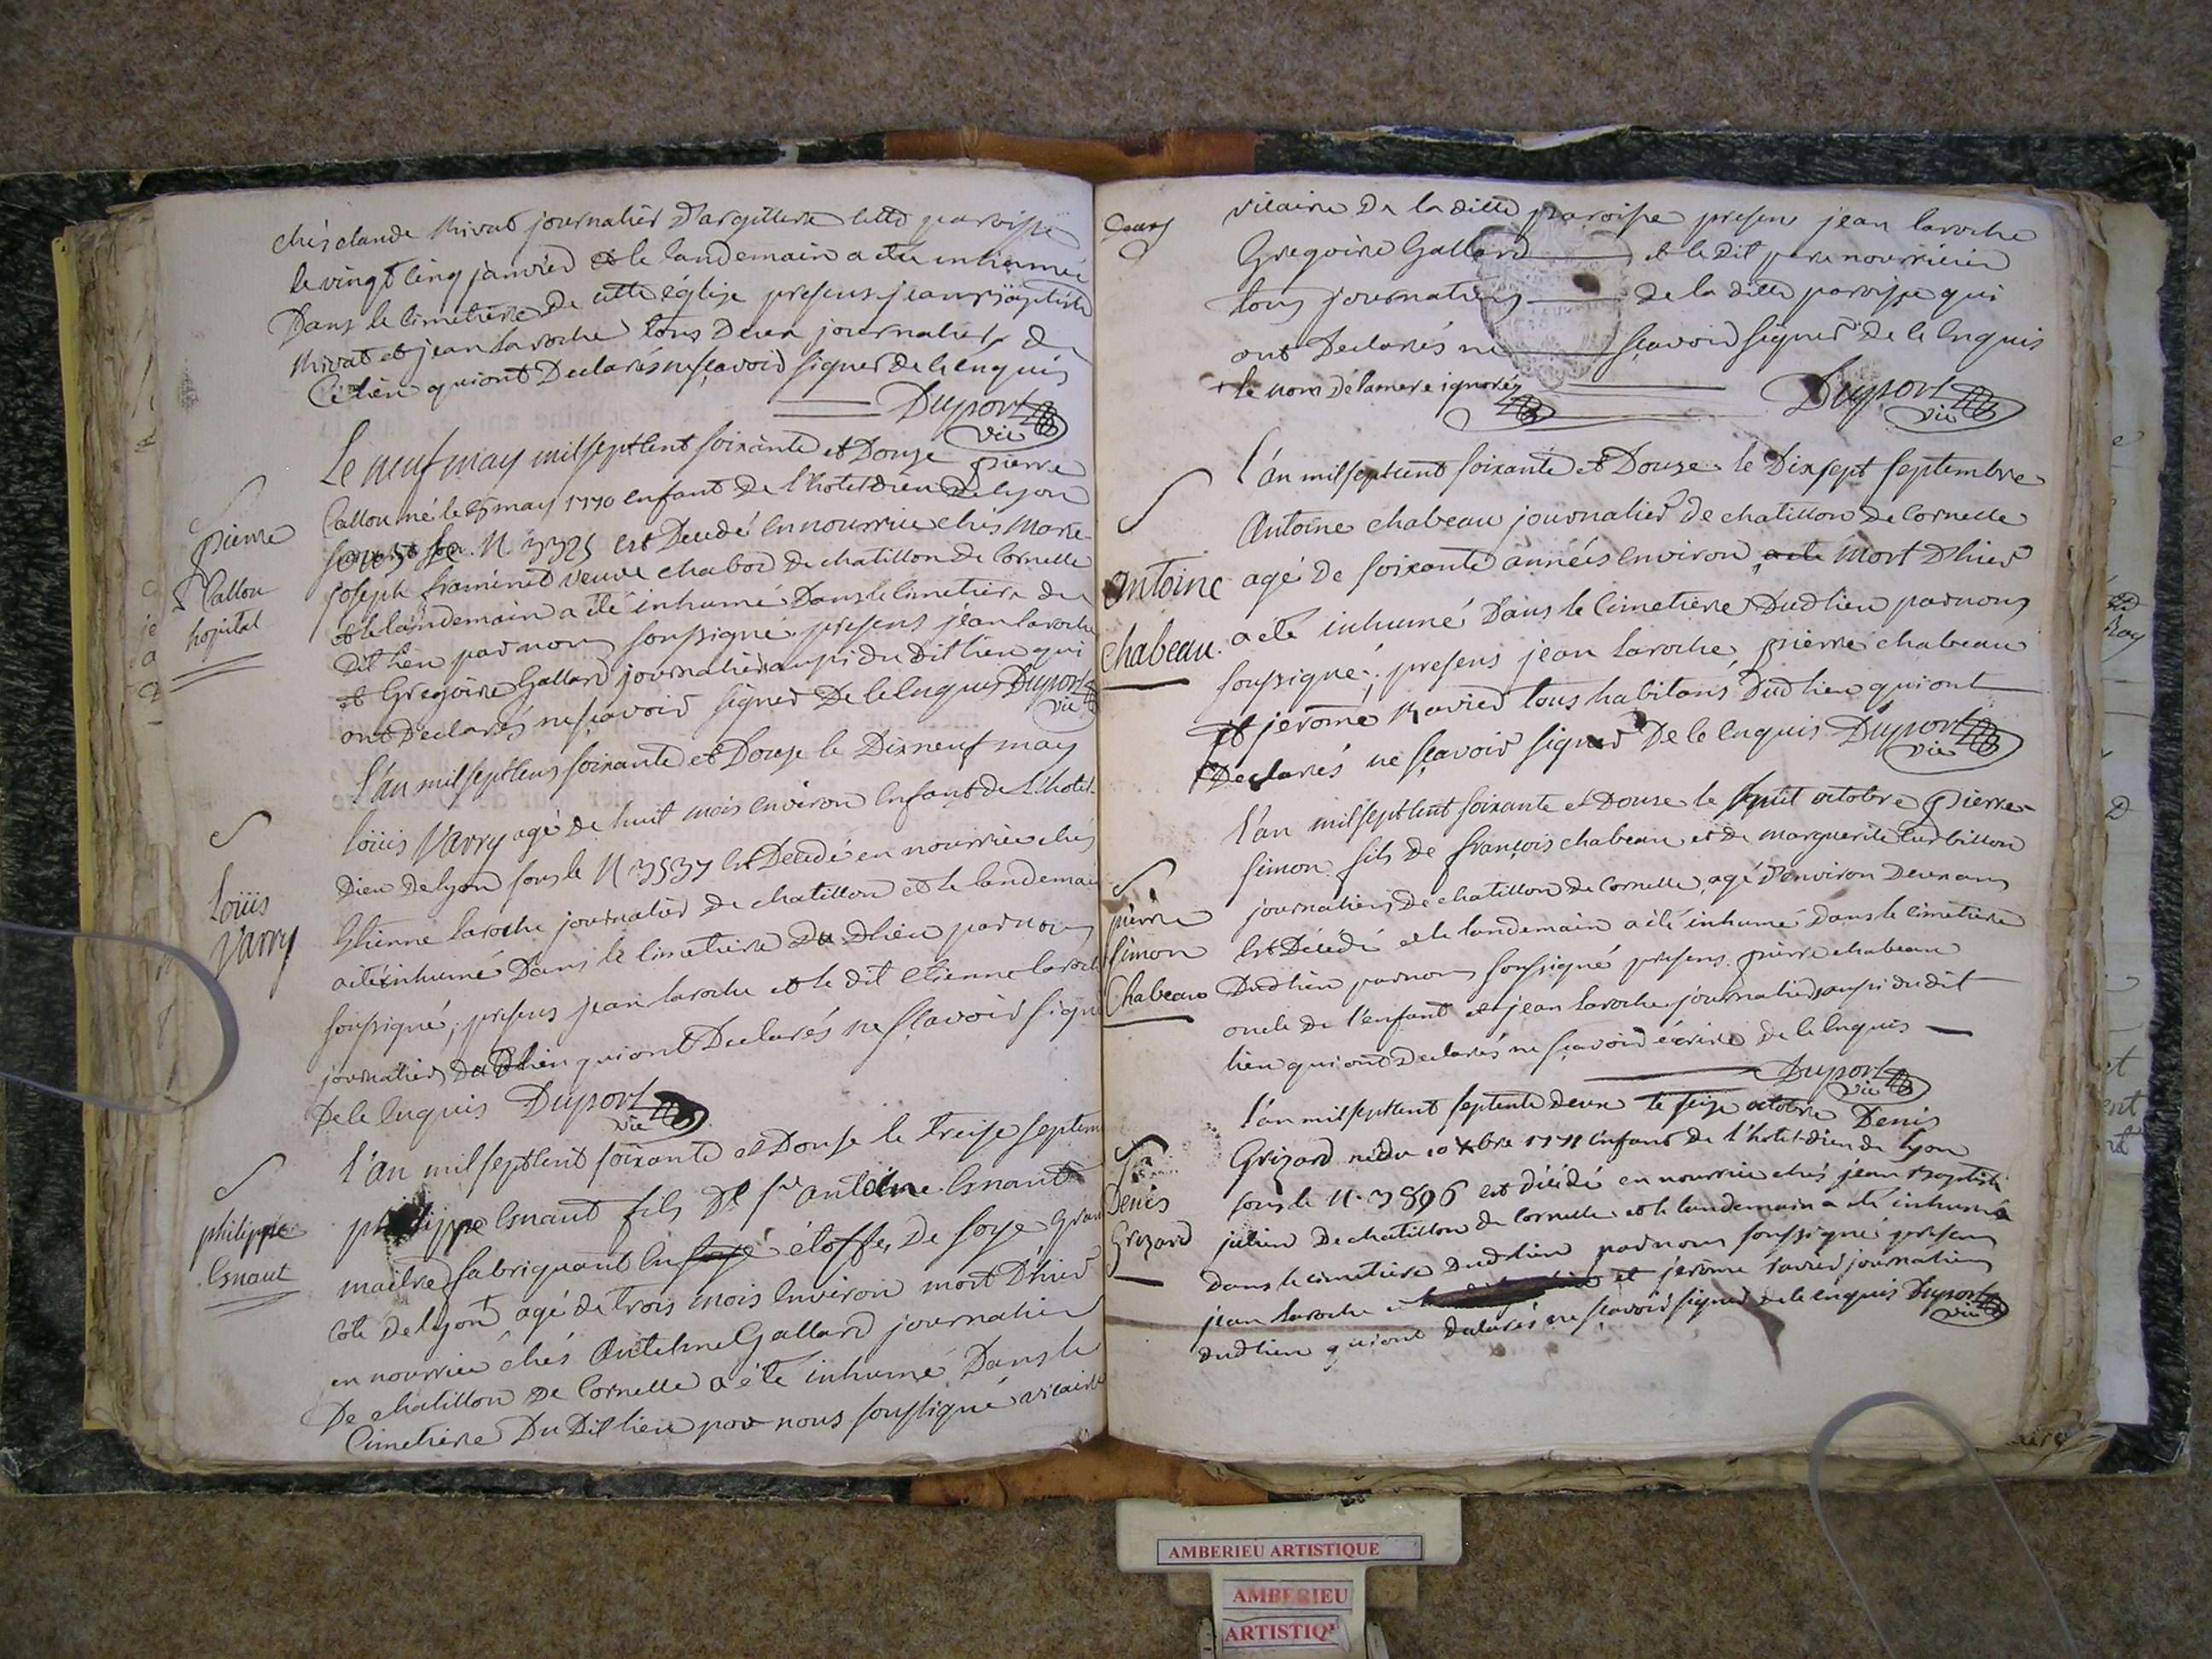 chés claude Mivat journalier D'argillieres cette paroisse
le vingt cinq janvier et le landemain a eté inhumé
Dans le cimetiere de cette église presens jean baptiste
Mivat et jean Laroche tous Deux journaliers du
Cedlieu qui ont Declarés ne sçavoir signer de ce enquis
Duport
vic
Le neuf may mil sept cent soixante et Douze pierre
Callou né le 5 may 1770 enfant de l'hotel dieu de lyon
N. 3325 est Decedé en nourrice chés Marie
joseph framinet veuve chabod de chatillon de Cornelle
et le landemain a été inhumé Dans le Cimetiere du
dit lieu par nous soussigné presens jean laroche
et Gregoire Gallard journaliers aussi du Dit lieu qui
ont Declarés ne sçavoir signer De ce enquis Duport
vic
pierre
Callou
hopital
L'an mil sept cens soixante et Douze le Dix neuf may
loüis Varry agé de huit mois environ enfant de L'hotel-
Dieu de lyon sous le N 3537 est Decedé en nourrice chés
Etienne laroche journalier de chatillon et le landemain
a été inhumé Dans le cimetiere du Dlieu par nous
soussigné, presens jean laroche et le dit etienne laroche
journaliers du Dlieu qui ont Declarés ne sçavoir signer
De ce enquis Duport
vic
Loüis
Varry
L'an mil sept cent soixante et Douse le treise septem
philippe Esnaut fils De sr antoine Esnaut
maitre fabriquant en étoffes De soye grand
cote de lyon agé de trois mois environ mort D'hier
en nourrice chés Antelme Gallard journalier
De chatillon De Cornelle a été inhumé Dans le
Cimetiere Du Dit lieu par nous soussigné vicaire
philippe
Esnaut
vicaire De la ditte paroisse presens jean laroche
Gregoire Gallard et le dit pere nourricier
tous journaliers de la ditte paroisse qui
ont Declarés ne sçavoir signer de ce enquis
+ le nom de la mere ignorés
Duport
vic
L'an mil sept cent soixante et Douze le Dix sept septembre
Antoine chabeau journalier de chatillon de Cornelle
agé de soixante années environ mort D'hier
a été inhumé Dans le Cimetiere Dudlieu par nous
soussigné, presens jean laroche, pierre chabeau
et jerome Ravier tous habitans Dudlieu qui ont
Declarés ne sçavoir signer De ce enquis Duport
vic
Antoine
Chabeau
L'an mil sept cent soixante et Douze le octobre pierre-
simon fils de françois chabeau et de marguerite Curbillon
journaliers de chatillon de Cornelle, agé d'environ Deux ans
est Decedé et le landemain a été inhumé Dans le cimetiere
Dudlieu par nous soussigné presens pierre chabeau
oncle de l'enfant et jean laroche journaliers aussi du dit
lieu qui ont Declarés ne sçavoir écrire de ce enquis
Duport
vic
pierre
simon
Chabeau
L'an mil sept cent septente deux le seize octobre Denis
Grizard né du 10 Xbre 1771 enfant de l'hotel-dieu de lyon
sous le N. 3896 est décédé en nourrice chés jean Baptiste
julien De chatillon de Cornelle et le landemain a été inhumé
Dans le cimetiere dudlieu par nous soussigné presens
jean laroche et jerome ravier journaliers
dudlieu qui ont declarés ne sçavoir signer de ce enquis Duport
vic
Denis
Grizard
AMBERIEU ARTISTIQUE
AMBERIEU
ARTISTIQ